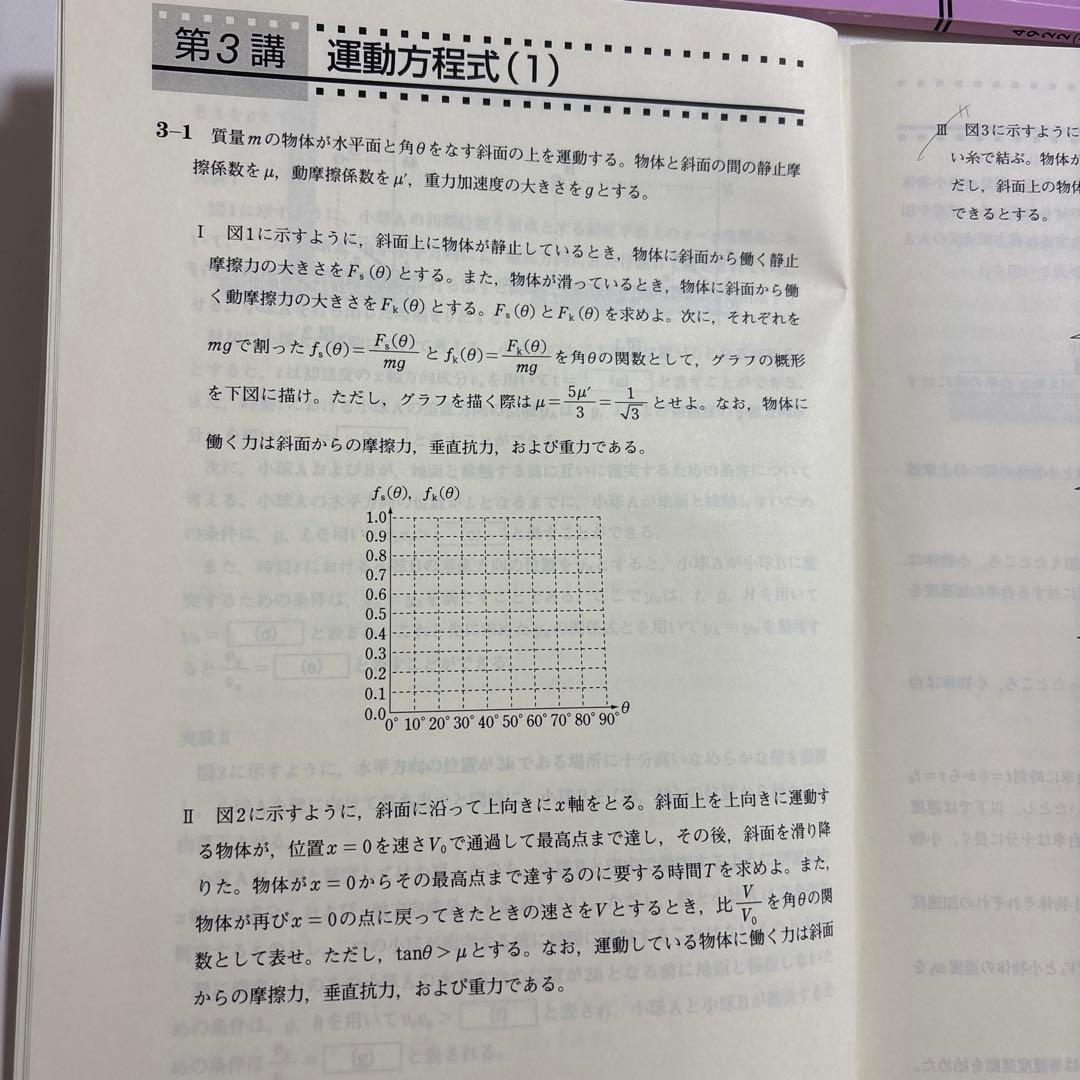 第3講 運動方程式(1)
3-1 質量mの物体が水平面と角θをなす斜面の上を運動する。物体と斜面の間の静止摩
擦係数をμ，動摩擦係数をμ′，重力加速度の大きさをgとする。
Ⅰ 図1に示すように，斜面上に物体が静止しているとき，物体に斜面から働く静止
摩擦力の大きさをFs(θ)とする。また，物体が滑っているとき，物体に斜面から働
く動摩擦力の大きさをFk(θ)とする。Fs(θ)とFk(θ)を求めよ。次に，それぞれを
mgで割ったfs(θ)=Fs(θ)/mgとfk(θ)=Fk(θ)/mgを角θの関数として，グラフの概形
を下図に描け。ただし，グラフを描く際はμ=5μ′/3=1/√3とせよ。なお，物体に
働く力は斜面からの摩擦力，垂直抗力，および重力である。
fs(θ)，fk(θ)
1.0
0.9
0.8
0.7
0.6
0.5
0.4
0.3
0.2
0.1
0.0
0° 10° 20° 30° 40° 50° 60° 70° 80° 90° θ
Ⅱ 図2に示すように，斜面に沿って上向きにx軸をとる。斜面上を上向きに運動す
る物体が，位置x=0を速さV₀で通過して最高点まで達し，その後，斜面を滑り降
りた。物体がx=0からその最高点まで達するのに要する時間Tを求めよ。また，
物体が再びx=0の点に戻ってきたときの速さをVとするとき，比V/V₀を角θの関
数として表せ。ただし，tanθ>μとする。なお，運動している物体に働く力は斜面
からの摩擦力，垂直抗力，および重力である。
Ⅲ 図3に示すように
い糸で結ぶ。物体が
だし，斜面上の物体
できるとする。